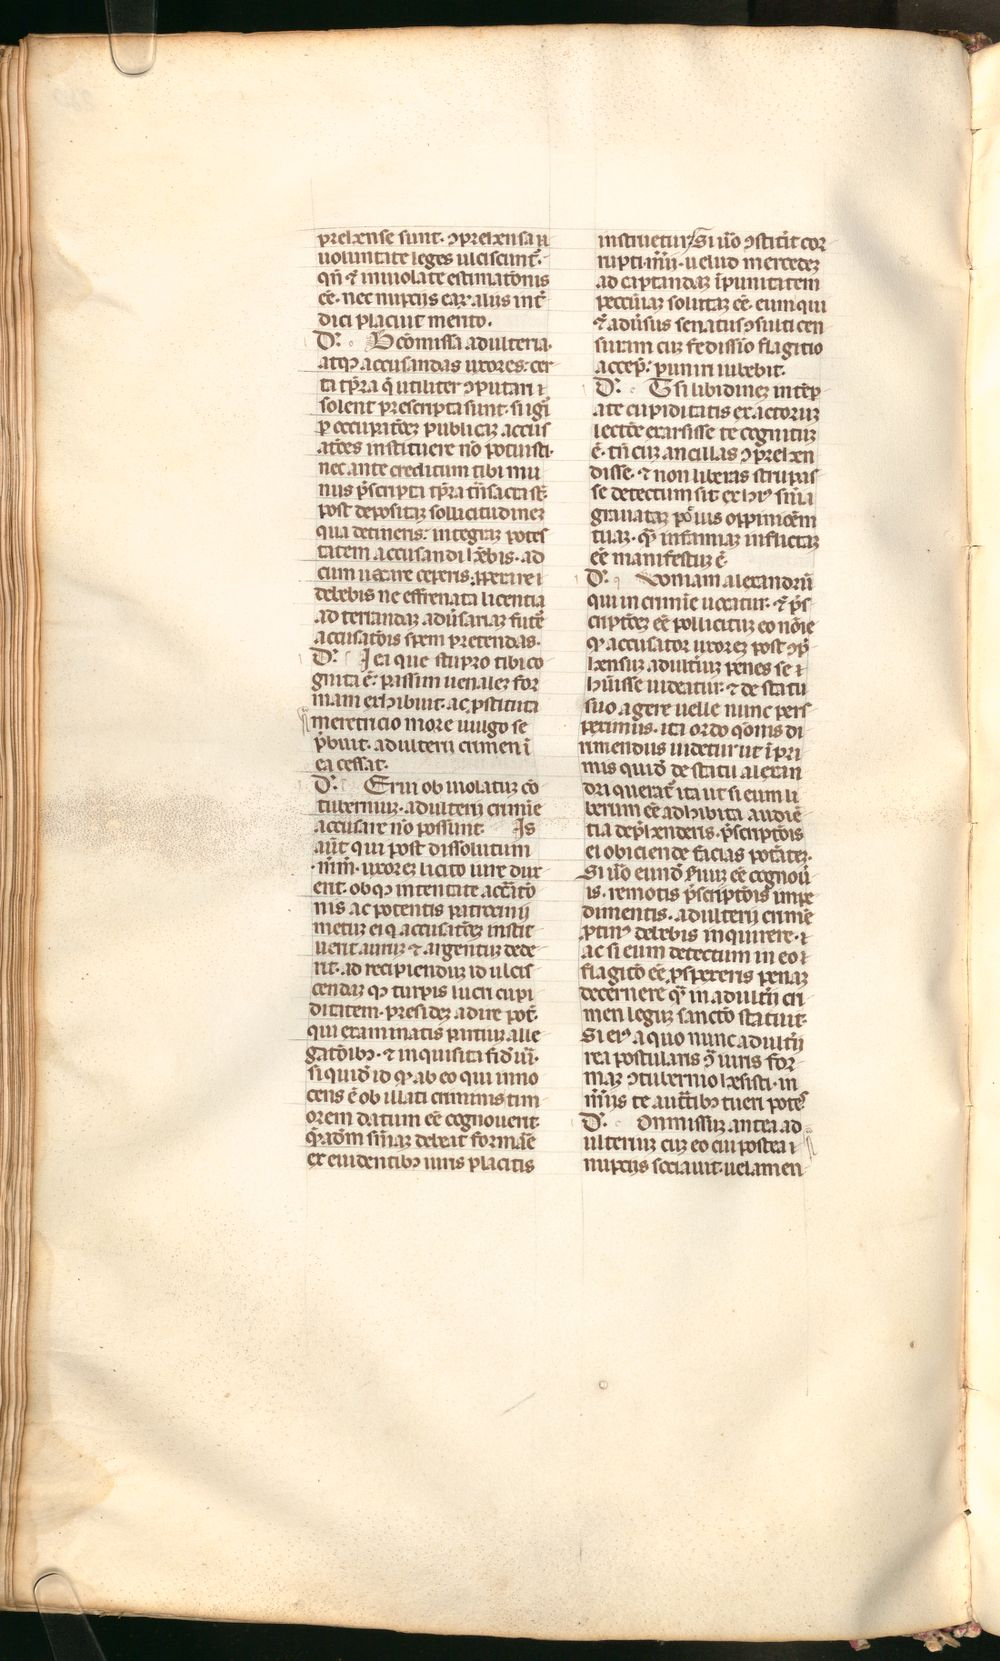 prehense sunt. ↄprehensa n̄
voluntate leges ulciscunt̄.
qn̄ ⁊ inviolate estimatōnis
eē. nec nupciis eaꝝ alius int̄
dici placuit merito.
D'. B cōmissa adulteria.
atqꝫ accusandas uxores: cer
ta tp̄ra q̄ utiliter ↄputari
solent prescripta sunt. si igr̄
p occupatōeꝫ publicaꝫ accus
atōes instituere nō potuisti.
nec ante creditum tibi mu
nus p̄scripta tp̄ra trn̄sacta st̄.
post depositaꝫ sollicitudineꝫ
qua detineris: integraꝫ potes
tatem accusandi hēbis. ad
cum vacare ceperis: properare
debebis ne effrenata licentia
ad terrendaꝫ adūsariaꝫ futē
accusatōis spem pretendas.
D'. I ea que stupro tibi co
gnita ē: passim venaleꝫ for
mam exhibuit. ac prostituta
meretricio more vulgo se
p̄buit. adulterii crimen ī
ea cessat.
D'. Ervi ob violatuꝫ cō
tuberniuꝫ. adulterii crimīe
accusare nō possunt. Is
aūt qui post dissolutum
m̄rm. uxoreꝫ licito iure dux
erit. obqꝫ intentate accūatō
nis ac potentis patrocinii
metuꝫ eiq accusatōeꝫ instit
uerit auruꝫ ⁊ argentuꝫ dede
rit. ad recipienduꝫ id ulcis
cendaꝫ qꝫ turpis lucri cupi
ditatem. presideꝫ adire pot̄.
qui examinatis partiuꝫ alle
gatōibꝫ. ⁊ inquisita fidē vī.
si quid id ꝙ ab eo qui inno
cens ē ob illati criminis tim
orem datum eē cognoverit.
q̄adm̄ sn̄iaꝫ debeat formare
ex evidentibꝫ iuris placitis
instruetur. Si uō ↄstit̄it cor
rupti m̄rii. velud mercedeꝫ
ad captandaꝫ īpunitatem
peccūiaꝫ solutaꝫ eē. eum qui
⁊ adūsus senatusↄsulti cen
suram cuꝫ fedissīo flagitio
accep̄. puniri iubebit.
D'. T si libidineꝫ intēp
ate cupiditatis ex actoruꝫ
lectōe exarsisse te cognituꝫ
ē. tn̄ cuꝫ ancillas ↄprehen
disse. ⁊ non liberas stupras
se detectum sit. ex huiꝰ sn̄ia
gravataꝫ potius oppinōem
tuaꝫ. qꝫ infamiaꝫ inflictaꝫ
eē manifestuꝫ ē.
D'. voniam alexandrū
qui in crimīe vocatur. ⁊ p̄s
criptōeꝫ eē pollicituꝫ eo noīe
ꝙ accusator uxoreꝫ post ↄp̄
hensuꝫ adult̄iuꝫ penes se
huisse videatur: ⁊ de statu
suo agere velle nunc pers
peximus. ita ordo q̄onis di
rimendus videtur ut īpri
mis quid de statu alexan
dri querat̄. ita ut si eum li
berum eē adhibita audiē
tia dep̄henderis. p̄scriptōis
ei obiciende facias potāteꝫ.
Si uō eund servuꝫ eē cognou
is. remotis p̄scriptōis impe
dimentis. adulterii crimīe
ꝓtinꝰ debebis inquirere.
ac si eum detectum in eo
flagitō eē ꝑspexeris penaꝫ
decernere qꝫ in adultii cri
men legum sanctō statuit.
Si eiꝰ a quo nunc adultii
rea postularis ꝯ iuris for
maꝫ ↄtubernio hesisti. in
m̄riis te aut̄tibꝫ tueri potes
D'. Ommissuꝫ antea ad
ulteriuꝫ cuꝫ eo cui postea
nupciis sociavit. velamen